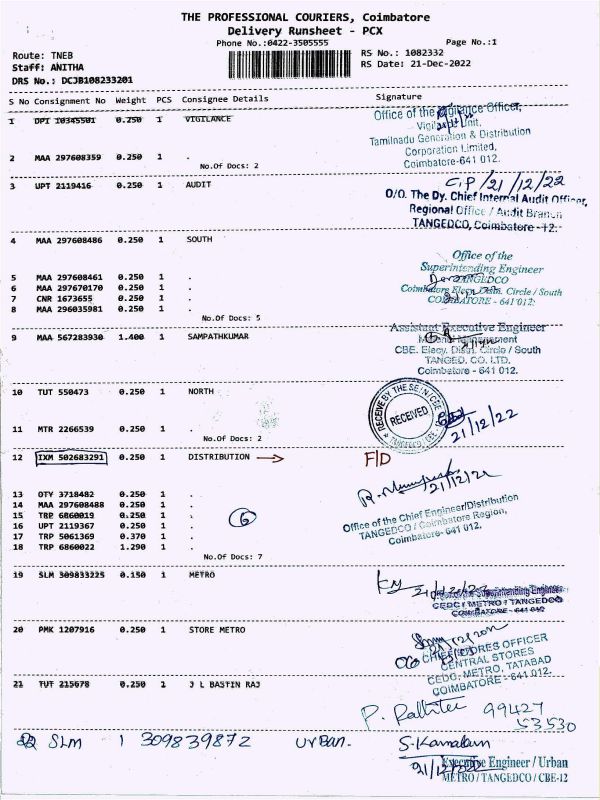 THE PROFESSIONAL COURIERS, Coimbatore
Delivery Runsheet - PCX
Phone No.:0422-3505555
Page No.:1
Route: TNEB
RS No.: 1082332
Staff: ANITHA
RS Date: 21-Dec-2022
DRS No.: DCJB108233201
S No Consignment No Weight PCS Consignee Details Signature
1 DPI 10345501 0.250 1 VIGILANCE
Office of the Vigilance Officer,
Vigilance Unit,
Tamilnadu Generation & Distribution
Corporation Limited,
Coimbatore-641 012.
2 MAA 297608359 0.250 1 .
No.Of Docs: 2
3 UPT 2119416 0.250 1 AUDIT
21/12/22
O/O. The Dy. Chief Internal Audit Officer,
Regional Office / Audit Branch
TANGEDCO, Coimbatore -12.
4 MAA 297608486 0.250 1 SOUTH
Office of the
Superintending Engineer
TANGEDCO
Coimbatore Elecy. Distn. Circle / South
COIMBATORE - 641 012.
5 MAA 297608461 0.250 1 .
6 MAA 297670170 0.250 1 .
7 CNR 1673655 0.250 1 .
8 MAA 296035981 0.250 1 .
No.Of Docs: 5
9 MAA 567283930 1.400 1 SAMPATHKUMAR
Assistant Executive Engineer
Material Management
CBE. Elecy. Distn. Circle / South
TANGED. CO. LTD.
Coimbatore - 641 012.
10 TUT 550473 0.250 1 NORTH
RECEIVED
21/12/22
11 MTR 2266539 0.250 1 .
No.Of Docs: 2
12 IXM 502683291 0.250 1 DISTRIBUTION → F/D
21/12/22
Office of the Chief Engineer/Distribution
TANGEDCO / Coimbatore Region,
Coimbatore- 641 012.
13 OTY 3718482 0.250 1 .
14 MAA 297608488 0.250 1 .
15 TRP 6860019 0.250 1 .
16 UPT 2119367 0.250 1 .
17 TRP 5061369 0.370 1 .
18 TRP 6860022 1.290 1 .
6
No.Of Docs: 7
19 SLM 309833225 0.150 1 METRO
Superintending Engineer
CEDC / METRO / TANGEDCO
COIMBATORE - 641 012
20 PMK 1207916 0.250 1 STORE METRO
CHIEF STORES OFFICER
CENTRAL STORES
CEDC, METRO, TATABAD
COIMBATORE - 641 012.
21 TUT 215678 0.250 1 J L BASTIN RAJ
99427
53530
22 SLM 1 309839872 Urban. S. Kamalam
21/12/22
Executive Engineer / Urban
METRO / TANGEDCO / CBE-12